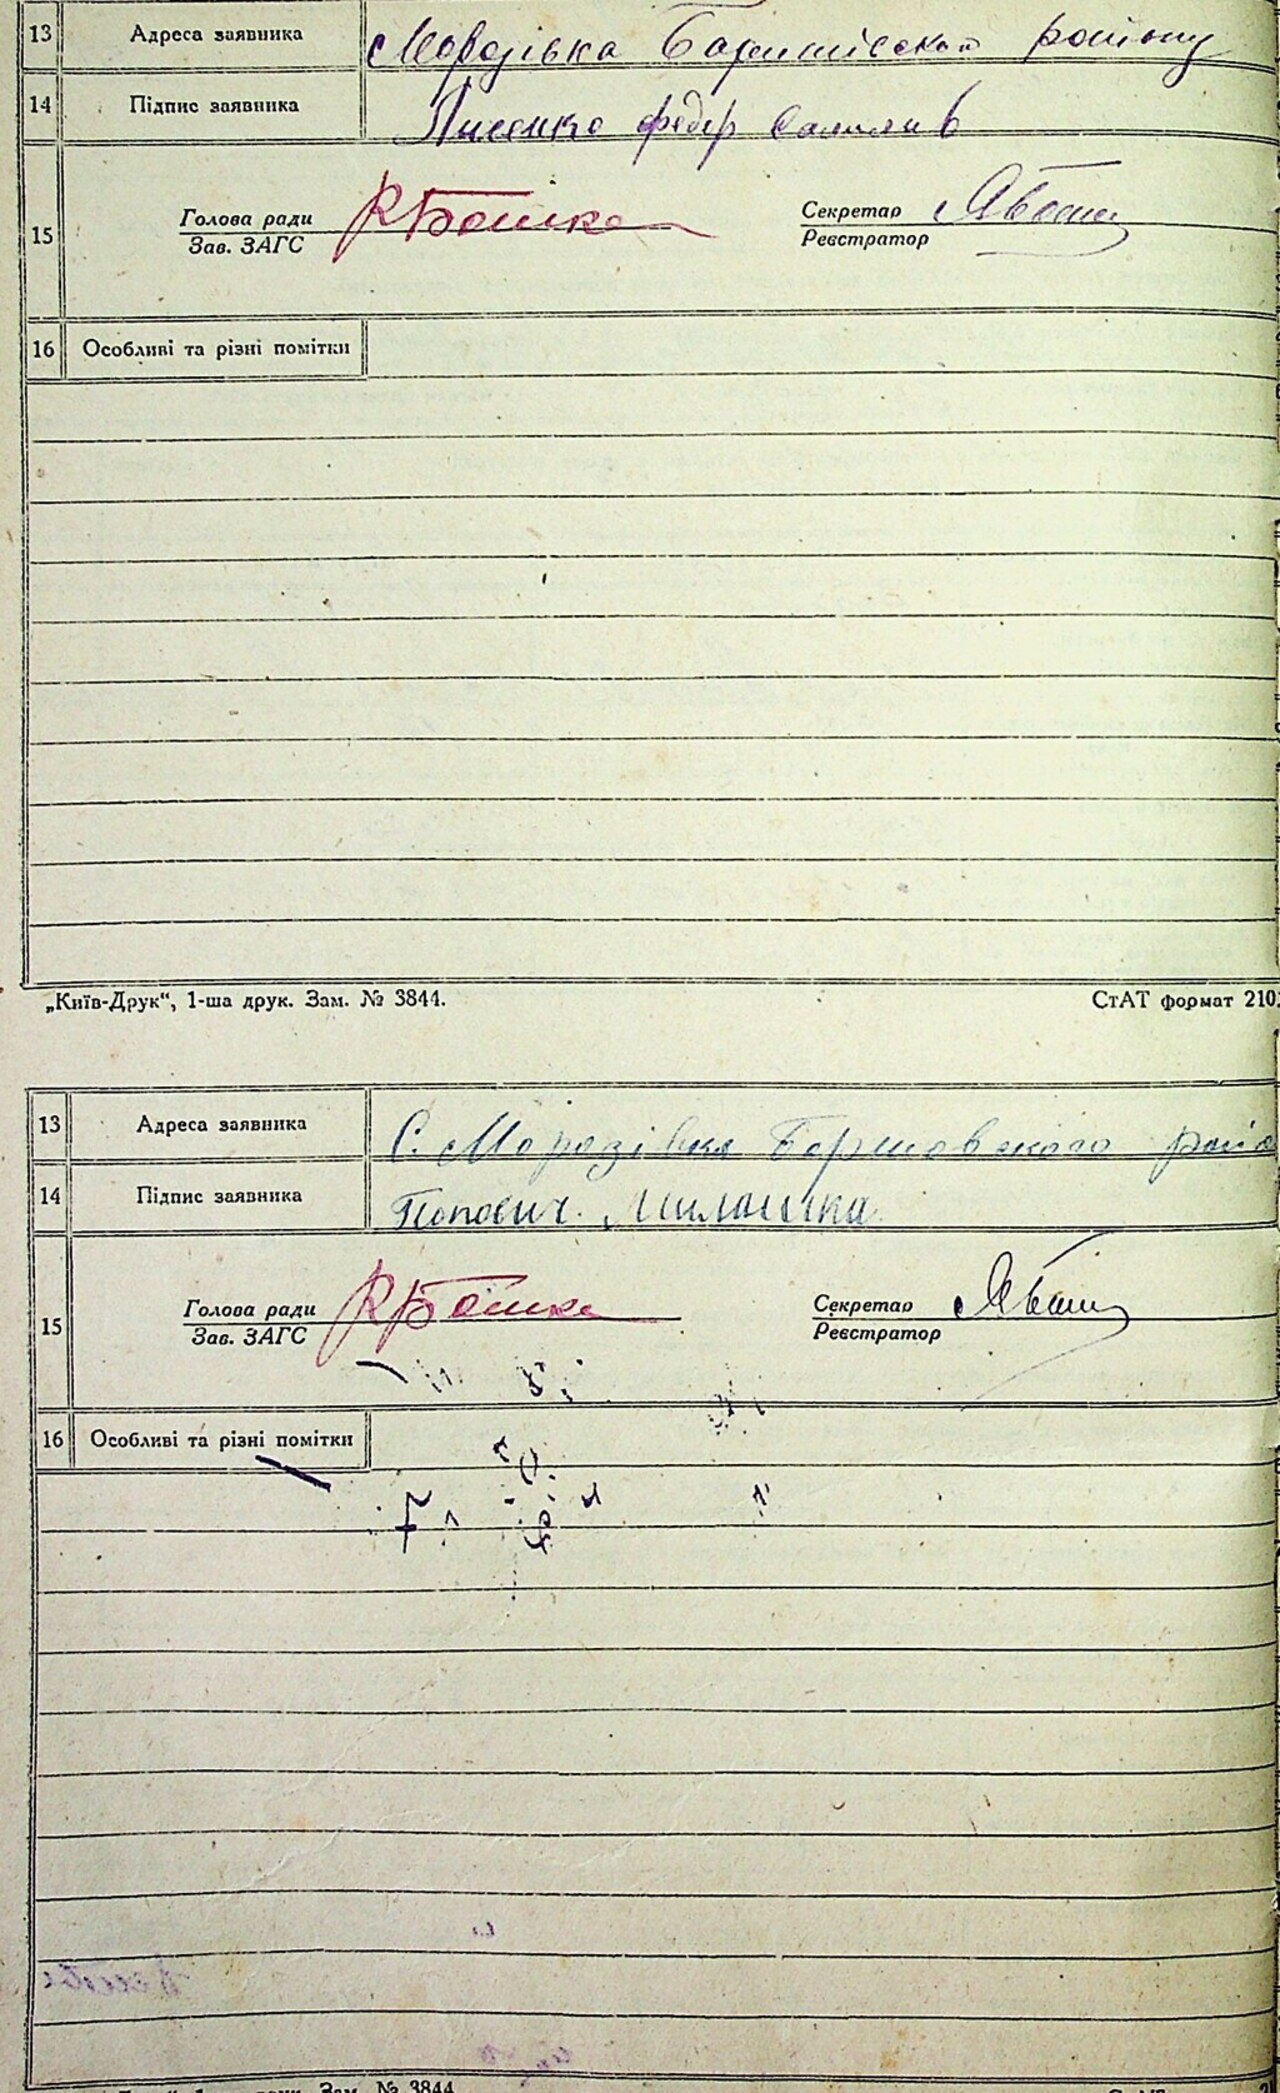 13 Адреса заявника Морозівка Баришівського району
14 Підпис заявника Лисенко Федір
15 Голова ради Секретар
Зав. ЗАГС Реєстратор
16 Особливі та різні помітки
„Київ-Друк“, 1-ша друк. Зам. № 3844. СтАТ формат 210
13 Адреса заявника С. Морозівка Боришовского райо
14 Підпис заявника Попович
15 Голова ради Секретар
Зав. ЗАГС Реєстратор
16 Особливі та різні помітки
Зам. № 3844